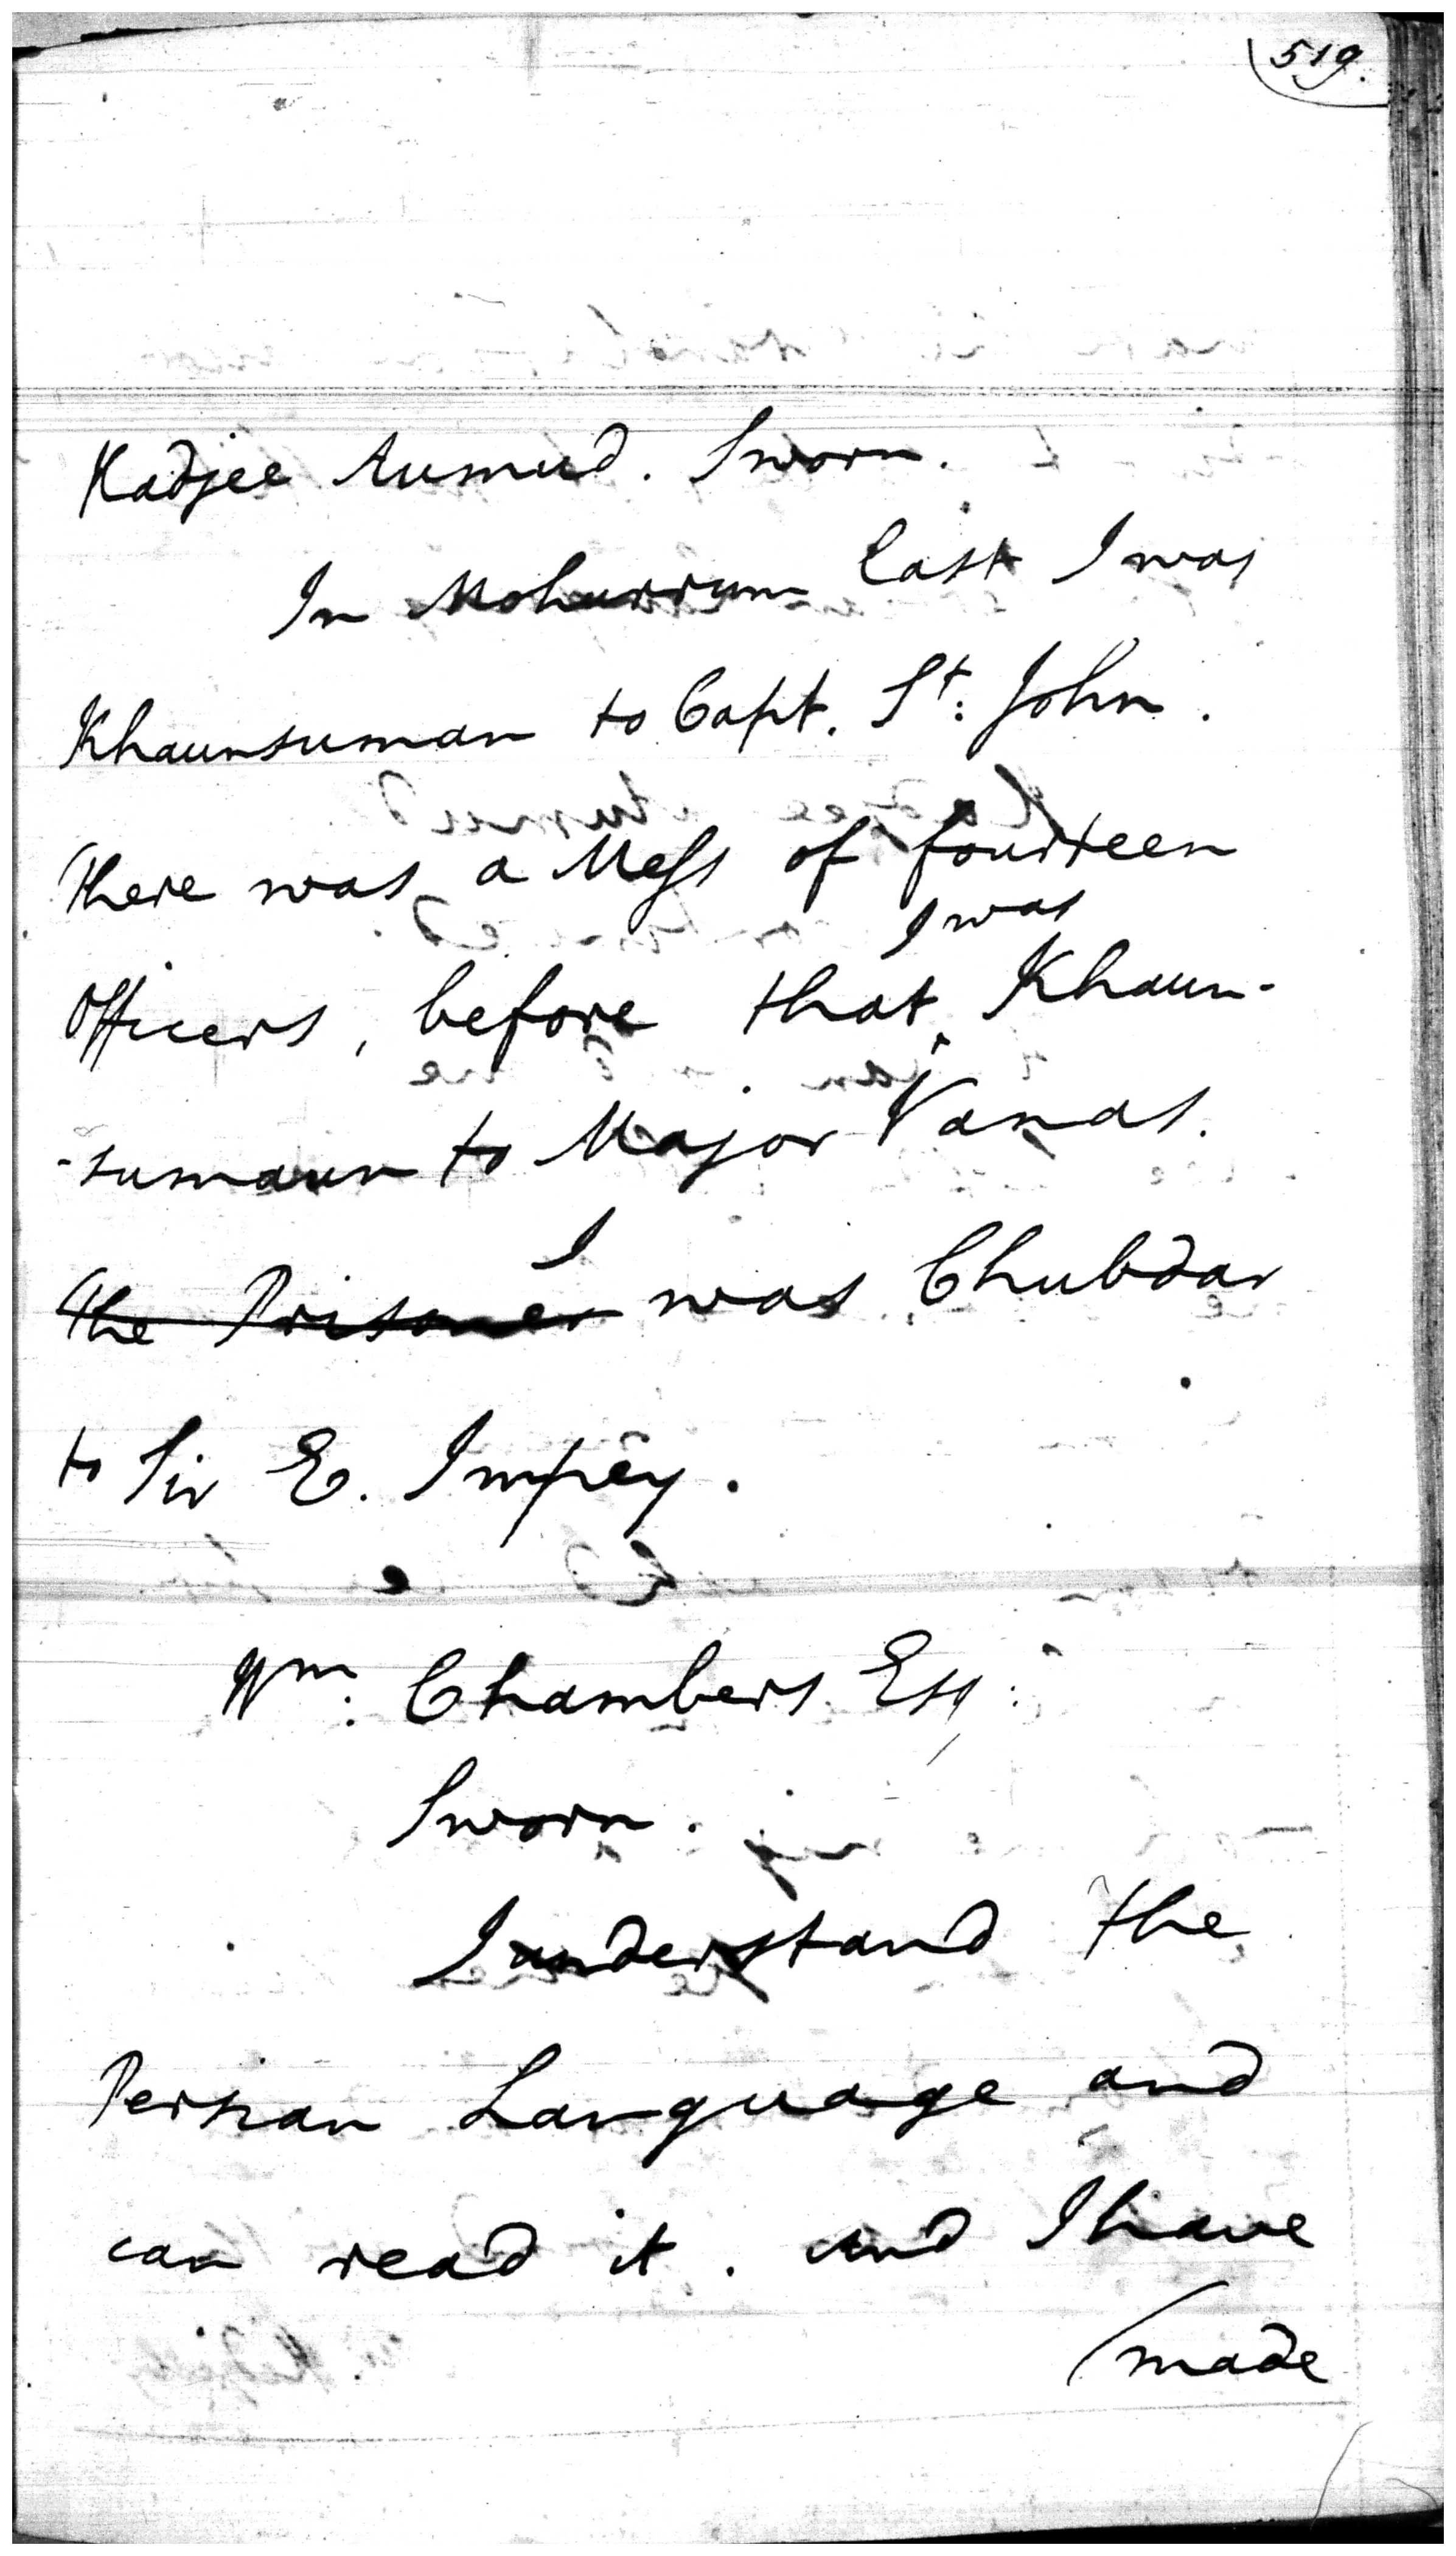 519.
Kadjee Aumud. Sworn.
In Mohurrum last I was
Khaunsuman to Capt. St: John.
There was a Mess of fourteen
I was
Officers, before that Khaun-
-sumaun to Major Vanas.
I
the Prisoner was Chubdar
to Sir E. Impey.
Wm. Chambers Esq:
Sworn.
I understand the
Persian Language and
can read it. and I have
made